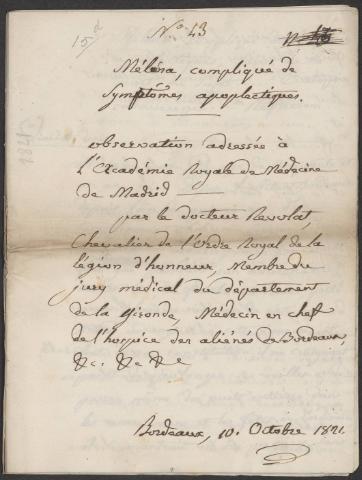 15 d
Nº 43
Méléna, compliqué de
Symptômes apoplectiques.
observation adressée à
L'Académie Royale de Médecine
de Madrid
par le docteur Revolat
Chevalier de l'Ordre Royal de la
légion d'honneur, Membre du
jury médical du département
de la Gironde, Médecin en chef
de l'hospice des aliénés de Bordeaux,
&c. &c &c
Bordeaux, 10. Octobre 1821